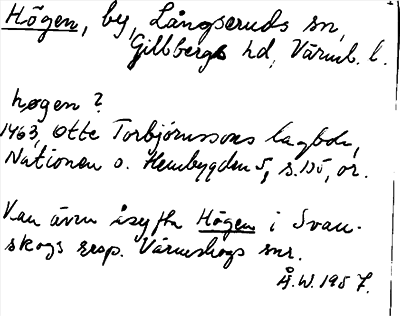 Högen, by, Långseruds sn,
Gillbergs hd, Värml. l.
høgen?
1463, Otte Torbjörnssons lagbok,
Nationen o. Hembygden 5, s. 135, or.
Kan även åsyfta Högen i Svan-
skogs resp. Värmskogs snr.
Å.W. 1957.